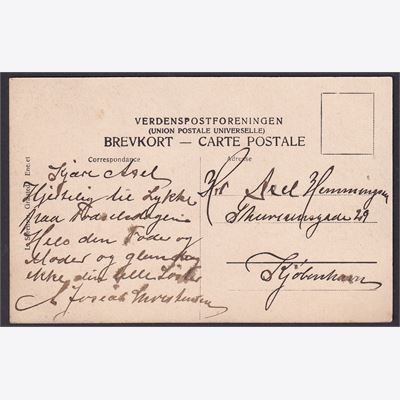 VERDENSPOSTFORENINGEN
(UNION POSTALE UNIVERSELLE)
BREVKORT — CARTE POSTALE
Correspondance
Adresse
Kjære Axel
Hjertelig til Lykke
paa Fødselsdagen
Hels din Fader og
Moder og glem
ikke din lille Søster
Hr Axel Hemmingsen
29
Kjøbenhavn